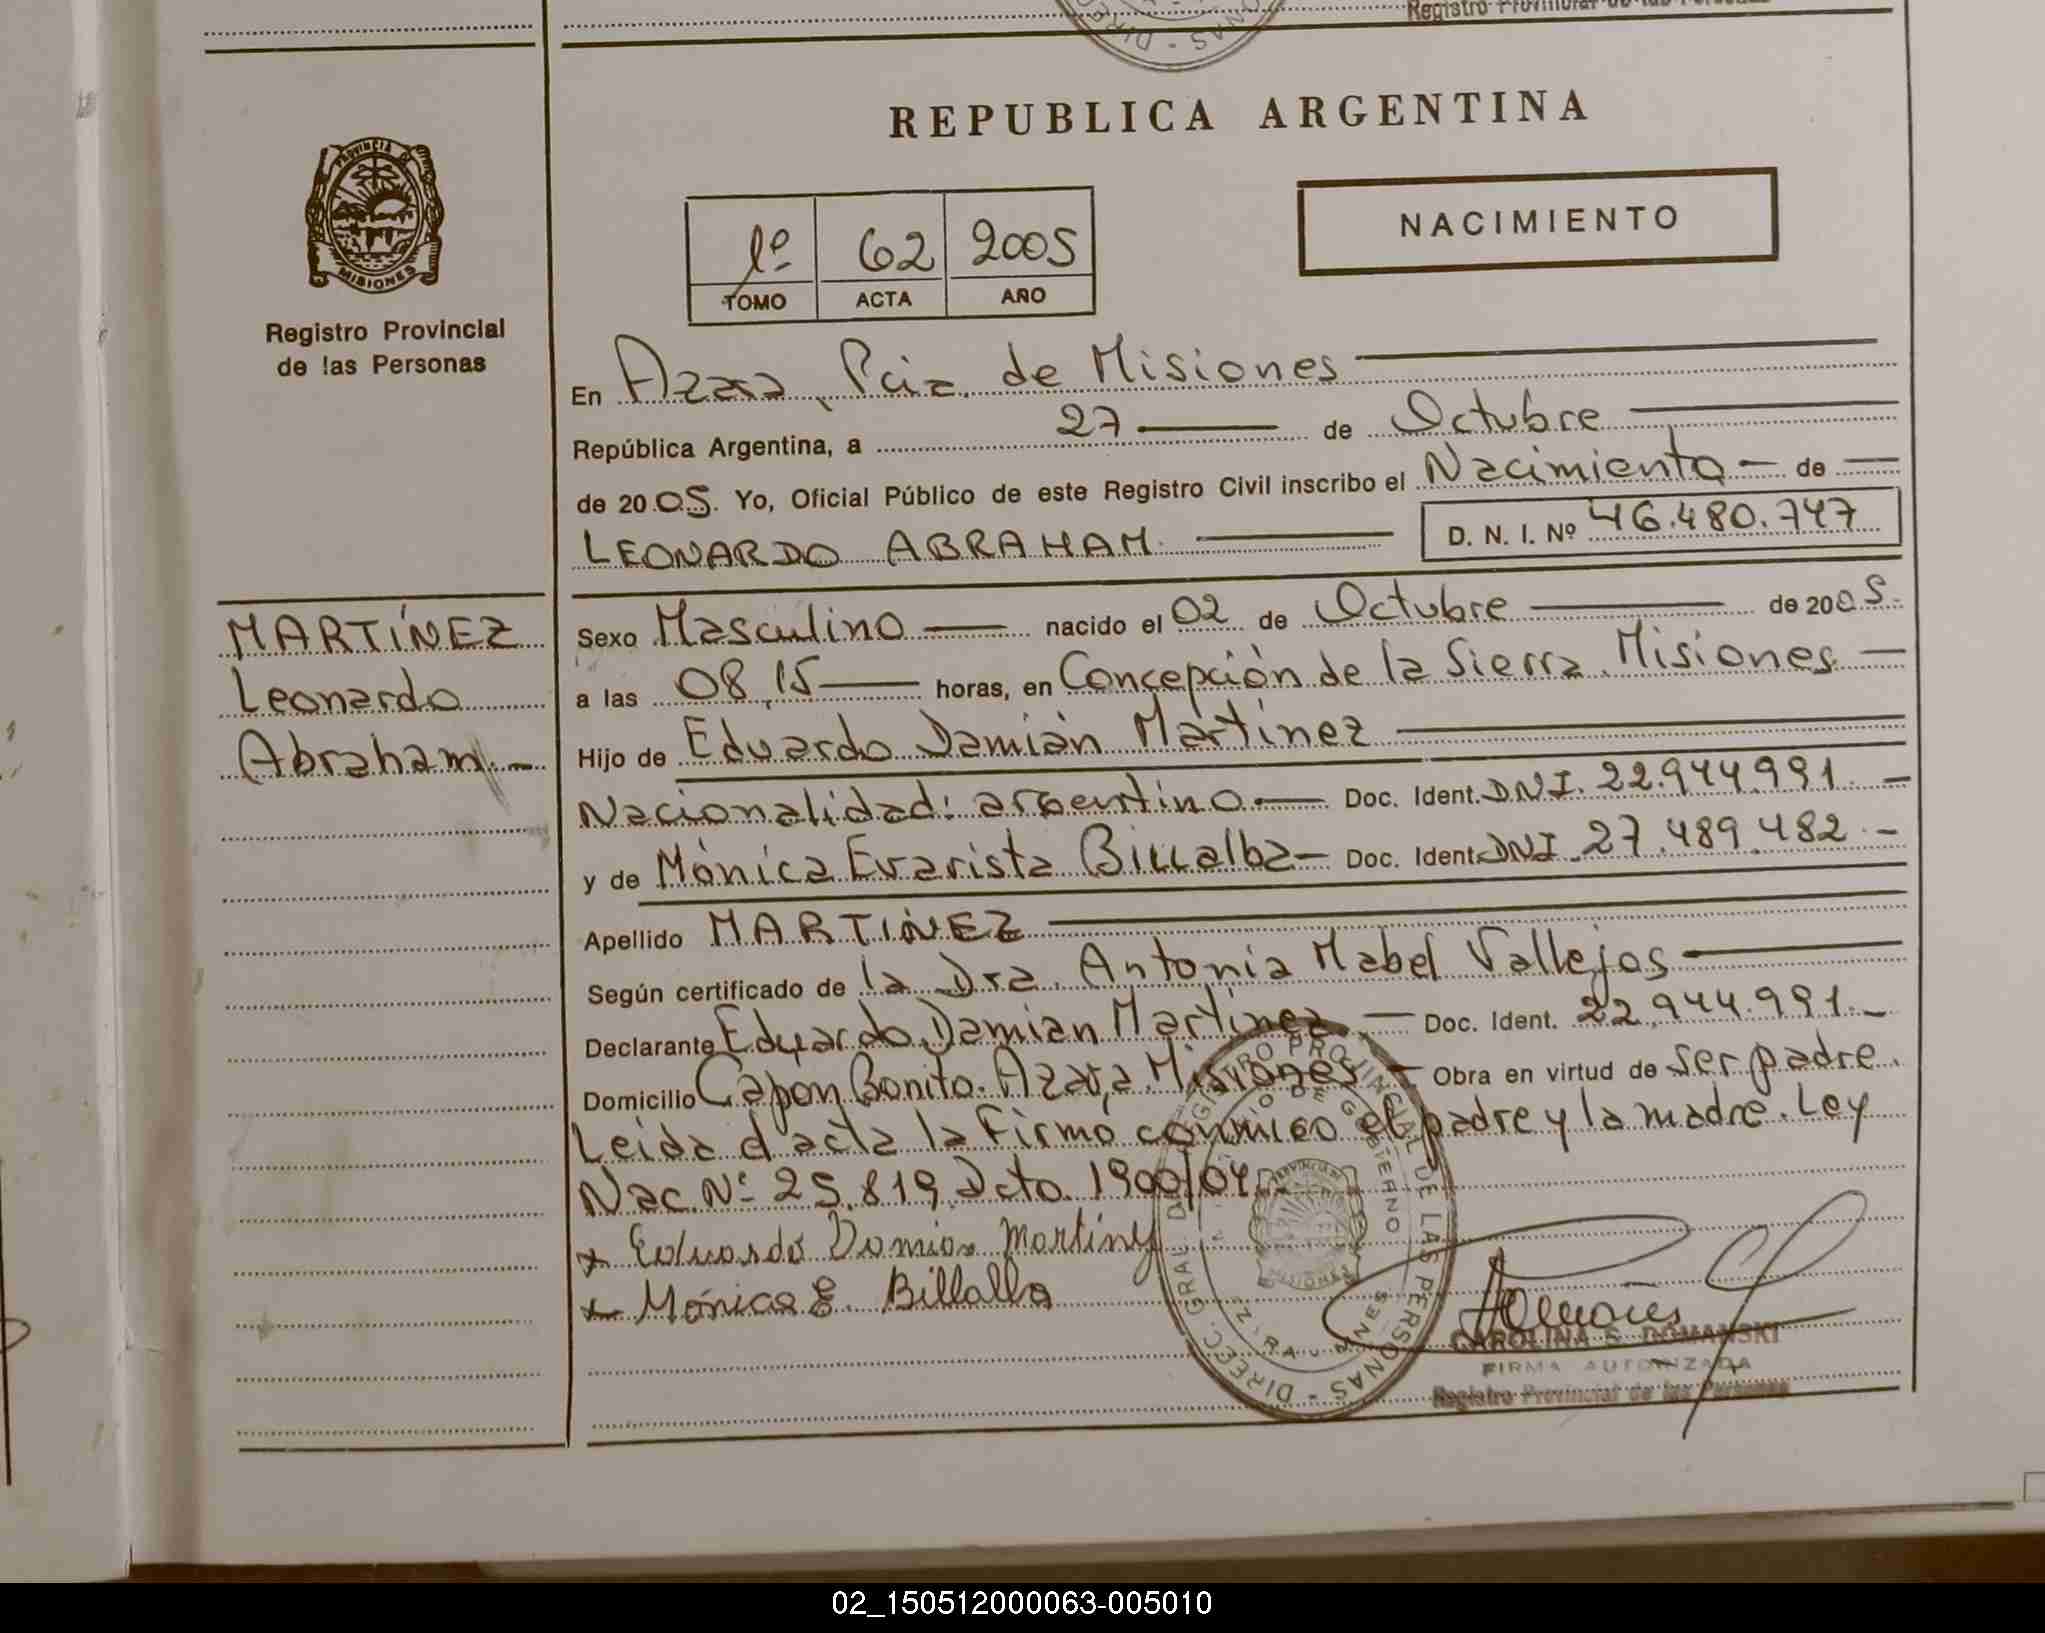 Registro Provincial de las Personas
DIREC
REPUBLICA ARGENTINA
PROVINCIA DE
MISIONES
Registro Provincial
de las Personas
NACIMIENTO
1º 62 2005
TOMO ACTA AÑO
En Azara, Pcia. de Misiones
República Argentina, a 27 de Octubre
de 2005. Yo, Oficial Público de este Registro Civil inscribo el Nacimiento de
LEONARDO ABRAHAM D. N. I. Nº 46.480.747
MARTÍNEZ
Leonardo
Abraham.-
Sexo Masculino nacido el 02 de Octubre de 2005.
a las 08,15 horas, en Concepción de la Sierra. Misiones
Hijo de Eduardo Damián Martínez
Nacionalidad: argentino Doc. Ident. DNI. 22.944.991.-
y de Mónica Evarista Billalba Doc. Ident. DNI. 27.489.482.-
Apellido MARTÍNEZ
Según certificado de la Dra. Antonia Mabel Vallejos
Declarante Eduardo Damián Martínez. Doc. Ident. 22.944.991.-
Domicilio Capon Bonito. Azara, Misiones Obra en virtud de ser padre.
Leída el acta la firmó conmigo el padre y la madre. Ley
Nac. Nº 25.819, Dcto. 1900/04.
x Eduardo Damian Martinez
x Mónica E. Billalba
DIREC. GRAL. DEL REGISTRO PROVINCIAL DE LAS PERSONAS
MINISTERIO DE GOBIERNO
PROVINCIA DE
MISIONES
CAROLINA S. DOMANSKI
FIRMA AUTORIZADA
Registro Provincial de las Personas
02_150512000063-005010